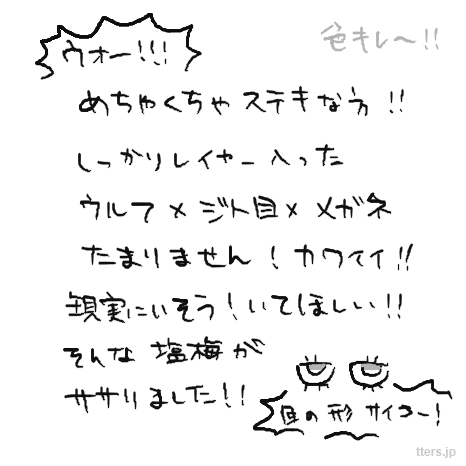 ウォー!!!
色キレ〜!!
めちゃくちゃステキなう!!
しっかりレイヤー入った
ウルフ×ジト目×メガネ
たまりません!カワイイ!!
現実にいそう!いてほしい!!
そんな塩梅が
ササりました!!
目の形サイコー!
tters.jp